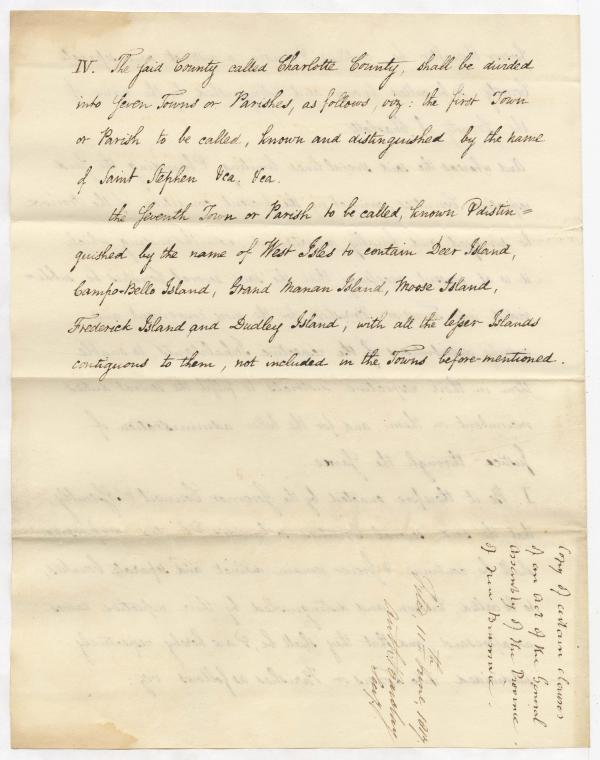 IV. The said County called Charlotte County, shall be divided
into seven Towns or Parishes, as follows, viz: the first Town
or Parish to be called, known and distinguished by the name
of Saint Stephen &ca. &ca.
the seventh Town or Parish to be called, known & distin=
guished by the name of West Isles to contain Deer Island,
Campo-Bello Island, Grand Manan Island, Moose Island,
Frederick Island and Dudley Island, with all the lesser Islands
contiguous to them, not included in the Towns before-mentioned.
Copy of certain clauses
of an Act of the General
Assembly of the Province
of New Brunswick.
Filed, 11th June, 1817.